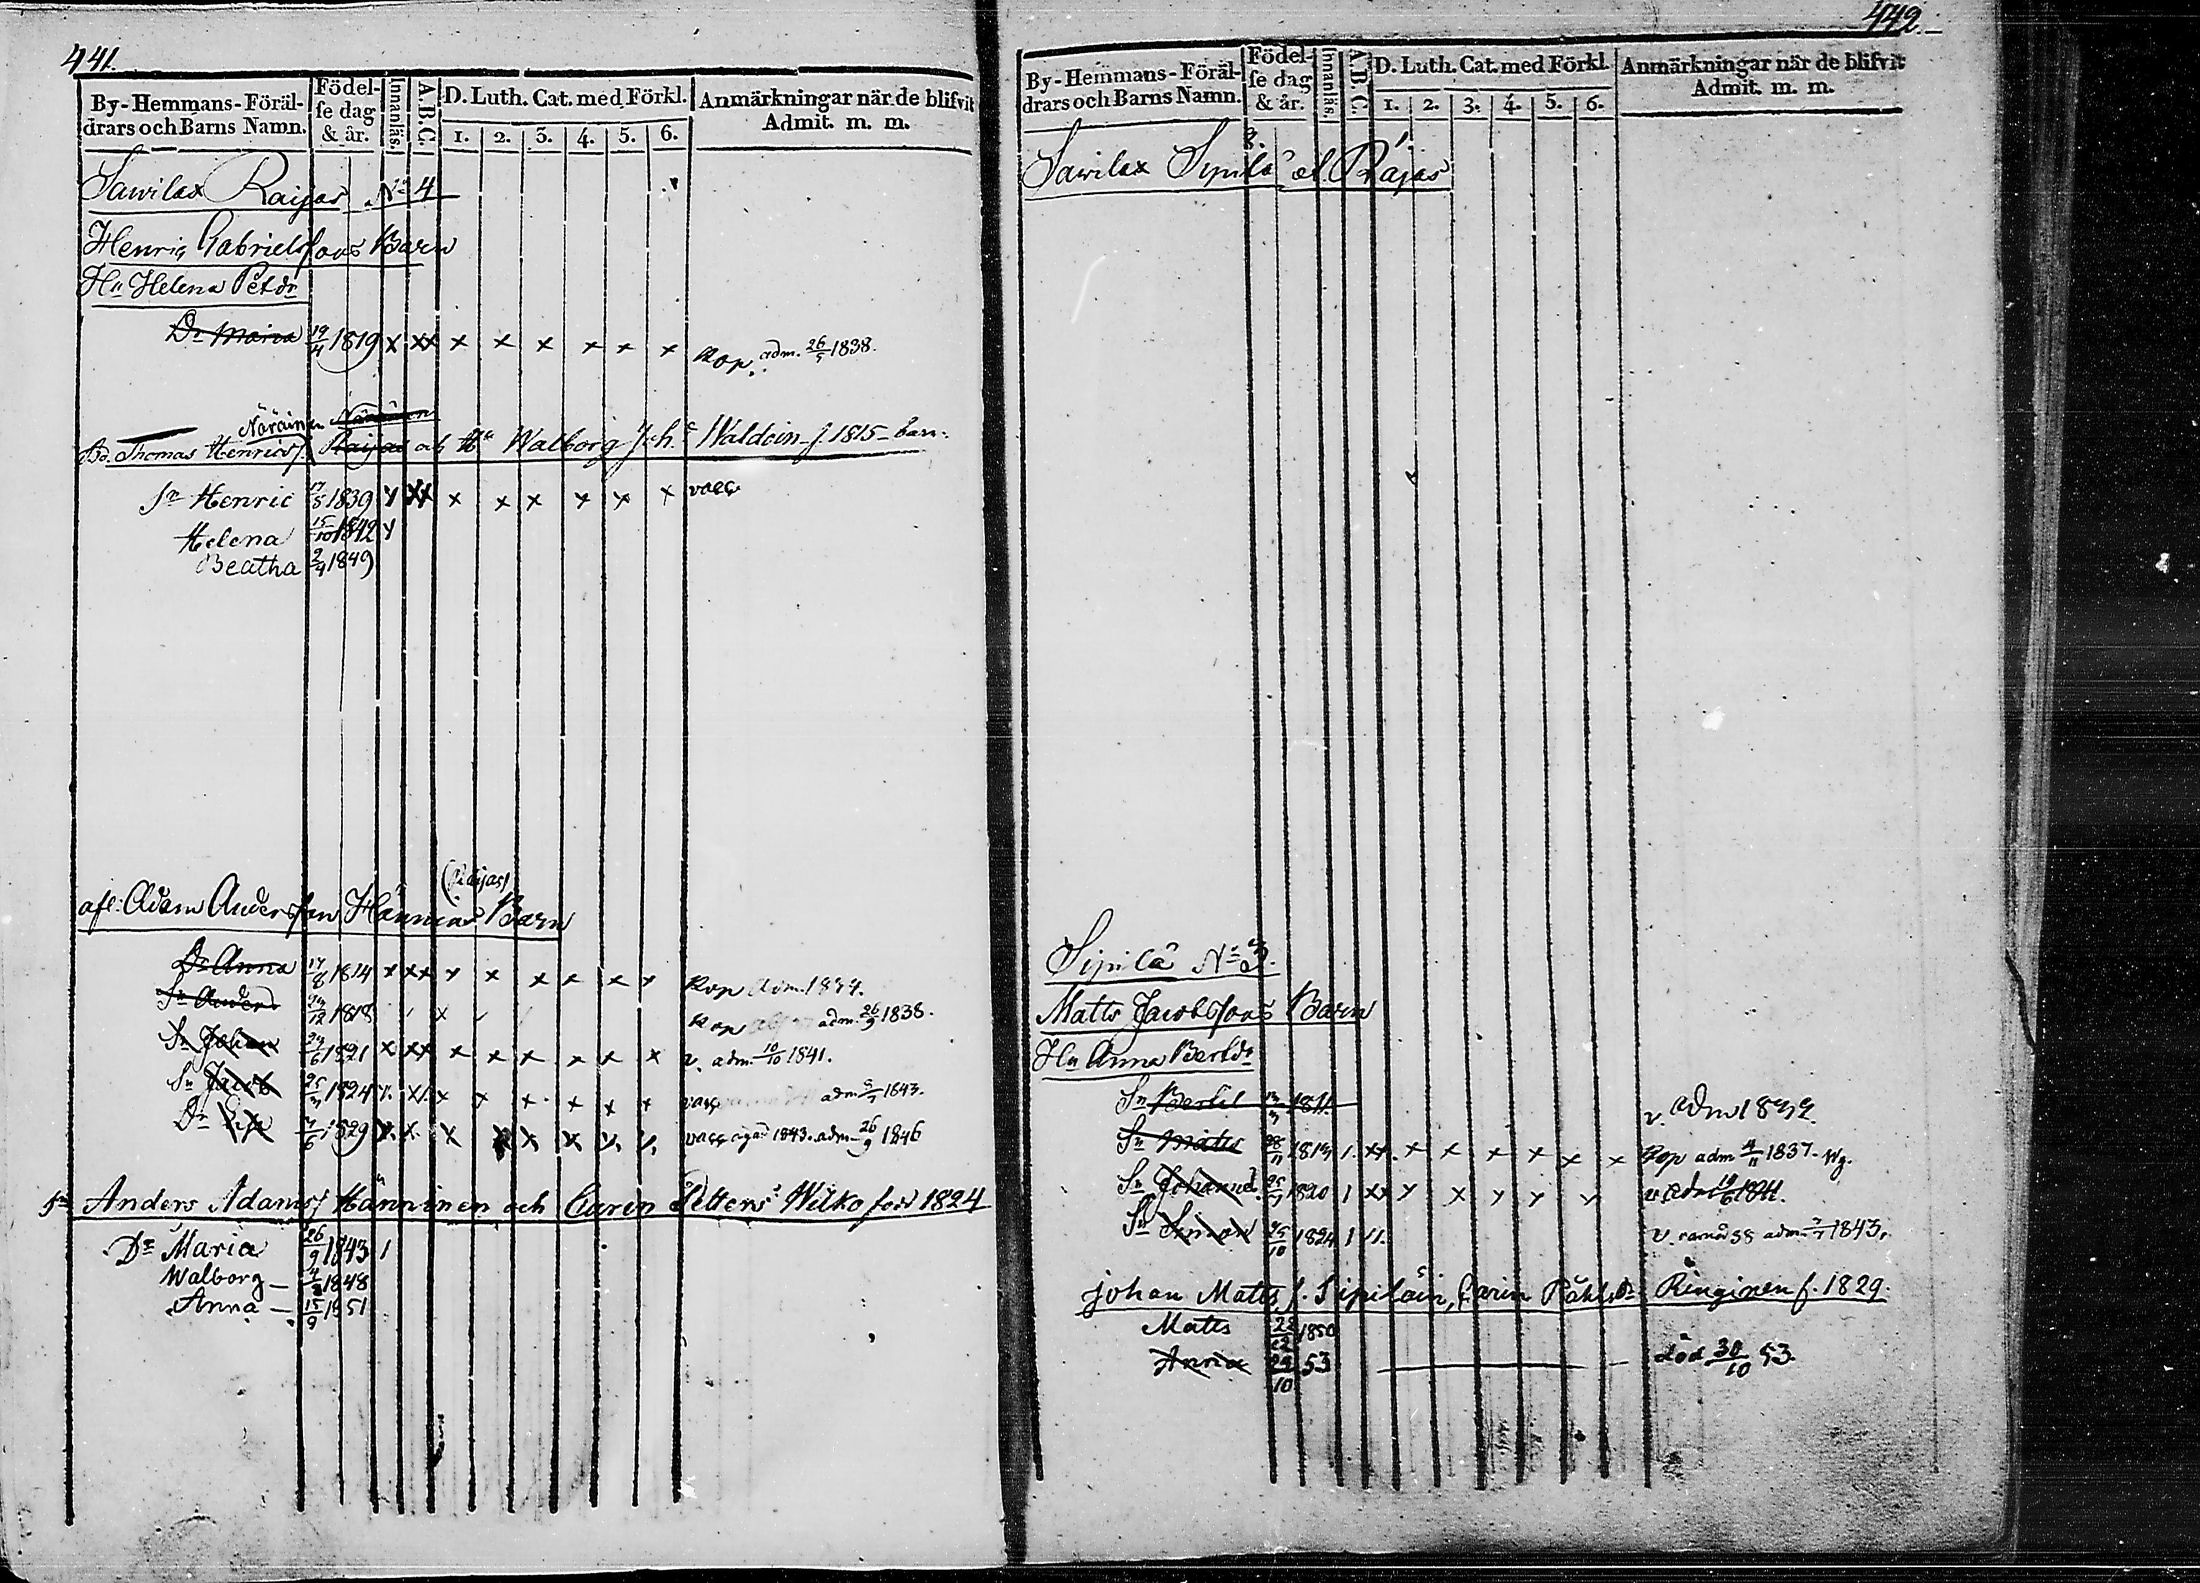 441.
By-Hemmans-Föräl-
drars och Barns Namn.
Födel-
se dag
& år.
Innanläs.
A.B.C.
D. Luth. Cat. med Förkl.
1. 2. 3. 4. 5. 6.
Anmärkningar när de blifvit
Admit. m. m.
Sawilax Raijas No 4
Henric Gabrielssons Barn
Hu Helena Petdr
Dr Maria 19/4 1819 x xx x x x x x x Kop. adm. 26/5 1838.
Näräinen
Bd. Thomas Henrics. Raijas och Hu Walborg Joh. Waldoin f. 1815 barn:
Sn Henric 17/5 1839 x xx x x x x x x vacc
Helena 15/10 1842
Beatha 2/4 1849
(Raijas)
afl: Adam Andersson Hännines Barn
Dr Anna 17/8 1814 x xx x x x x x x Kop Adm. 1834.
Sn Anders 29/12 1818 Kop adm. 26/9 1838.
Sn Johan 24/6 1821 x xx x x x x x x v. adm. 10/10 1841.
Sn Jacob 25/3 1824 x x x x x x vacc adm. 1843.
Dr Eva 4/6 1829 x x x x x x vacc 1843. adm. 26/9 1846
Sn Anders Adams/ Hänninen och Carin Pettersd Wilko född 1824
Dr Maria 26/9 1843 1
Walborg — 4/3 1848
Anna — 15/9 1851
442.
By-Hemmans-Föräl-
drars och Barns Namn.
Födel-
se dag
& år.
Innanläs.
A.B.C.
D. Luth. Cat. med Förkl.
1. 2. 3. 4. 5. 6.
Anmärkningar när de blifvit
Admit. m. m.
Sawilax Sipilä el. Räjas
Sipilä No 3.
Matts Jacobssons Barn
Hu Anna Bertdr
Sn Bertel 1811 v. Adm 1832.
Sn Matts 28/11 1813 1. xx. x x x x x x Kop adm 4/11 1837.
Sn Johannes 25/7 1820 1 xx x x x x v. Adm 1841.
Sn Simon 25/10 1824 1 11. v. adm. 1843.
Johan Matts f. Sipiläin, Carin Påhlsdr Ringinen f. 1829.
Matts 22/12 1850
Anna 29/10 53 död 30/10 53.